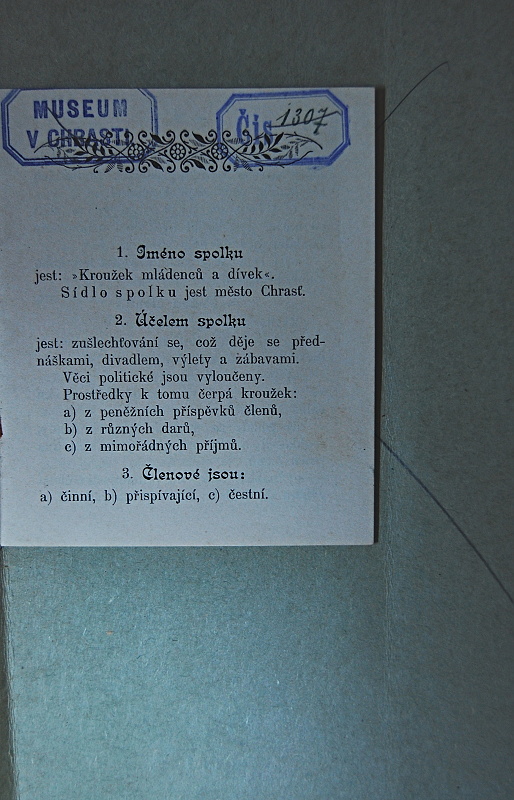 MUSEUM
V CHRASTI
Čís. 1307
1. Jméno spolku
jest: »Kroužek mládenců a dívek«.
Sídlo spolku jest město Chrasť.
2. Účelem spolku
jest: zušlechťování se, což děje se před-
náškami, divadlem, výlety a zábavami.
Věci politické jsou vyloučeny.
Prostředky k tomu čerpá kroužek:
a) z peněžních příspěvků členů,
b) z různých darů,
c) z mimořádných příjmů.
3. Členové jsou:
a) činní, b) přispívající, c) čestní.